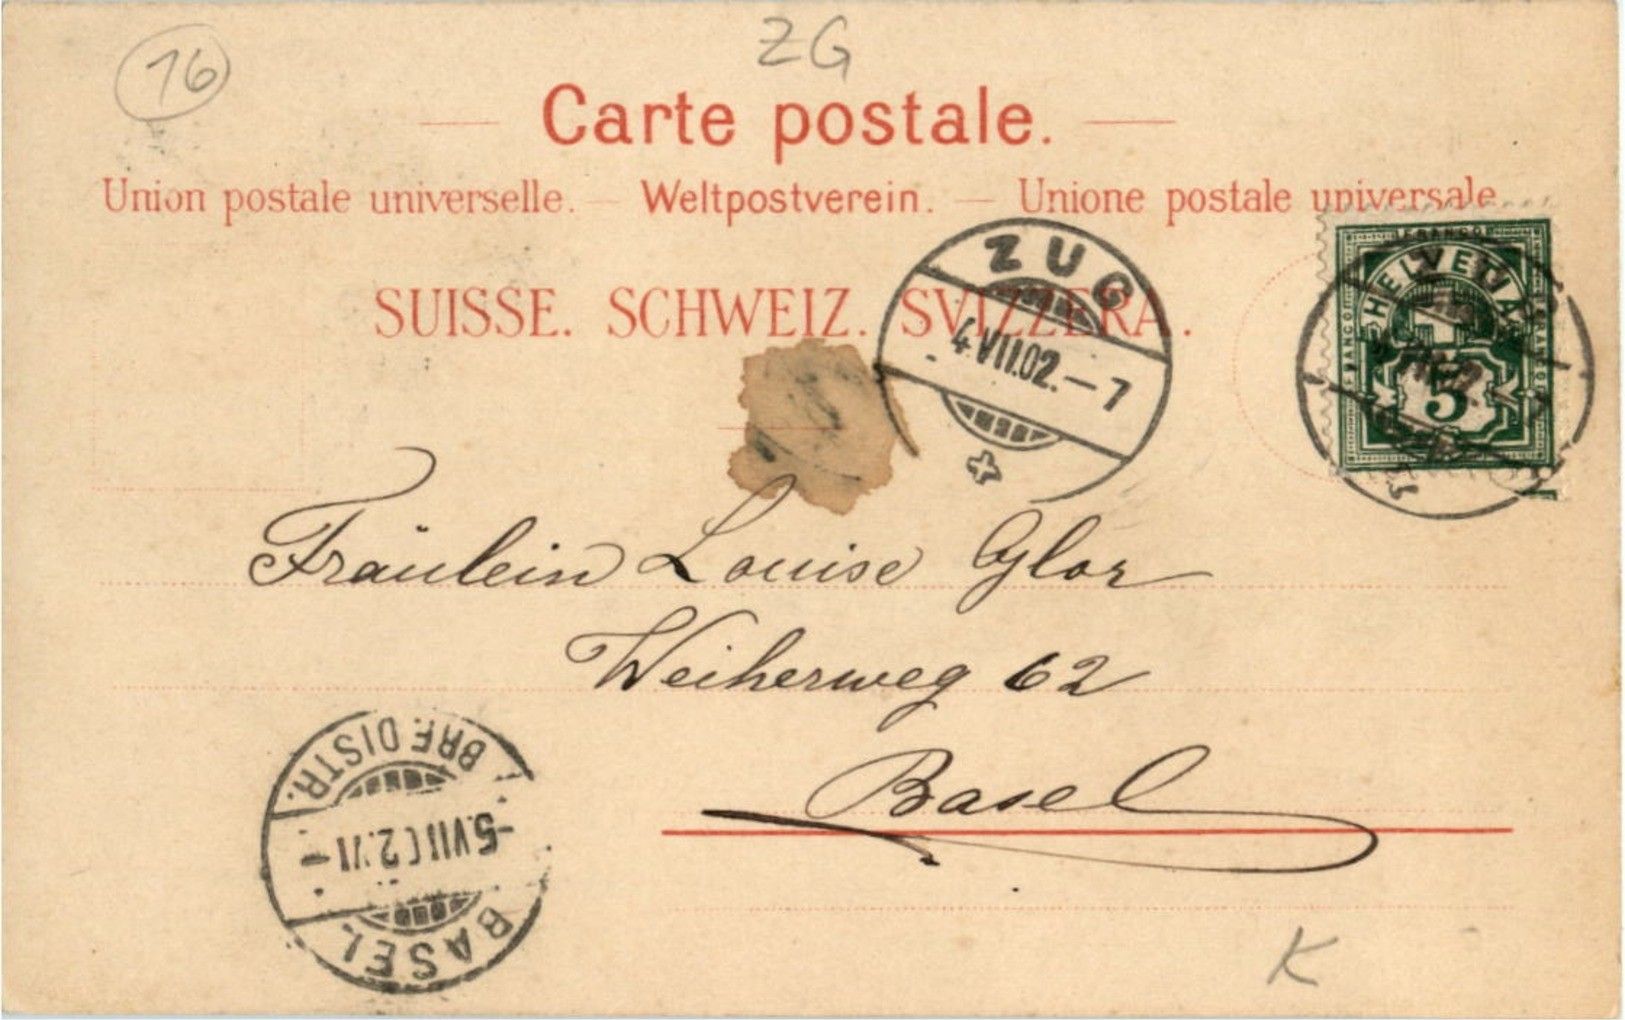 16
ZG
Carte postale.
Union postale universelle. — Weltpostverein. — Unione postale universale
SUISSE. SCHWEIZ. SVIZZERA.
ZUG
4.VII.02.–7
FRANCO
HELVETIA
FRANCO
5
Fräulein Louise Glor
Weiherweg 62
Basel
BASEL
BRF. DISTR.
K